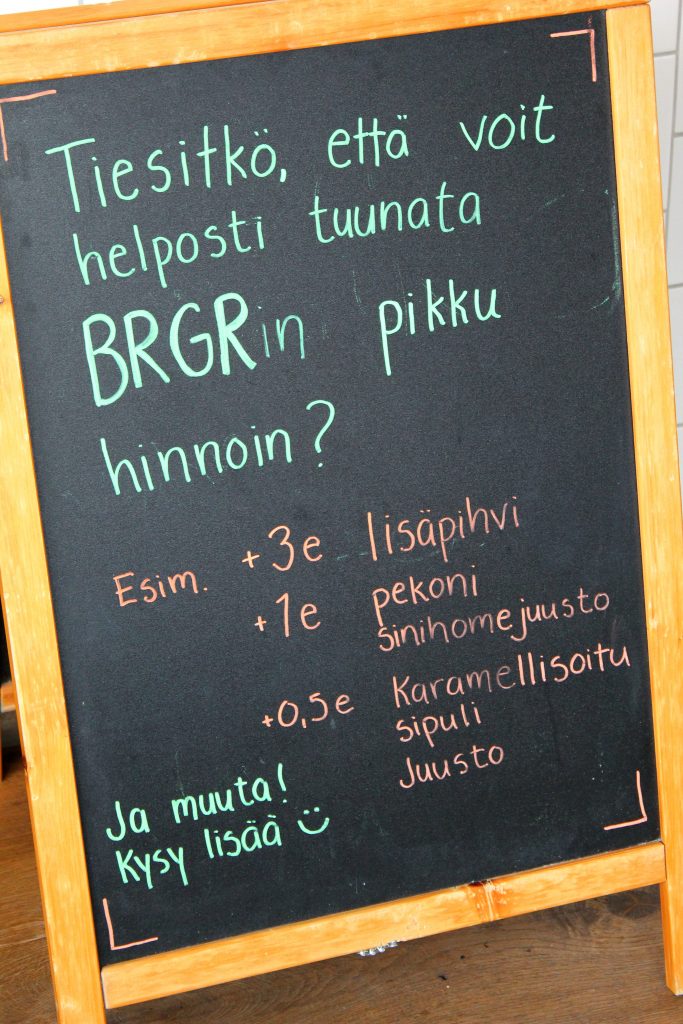 Tiesitkö, että voit
helposti tuunata
BRGRin pikku
hinnoin?
Esim. +3e lisäpihvi
+1e pekoni
sinihomejuusto
+0,5e Karamellisoitu
sipuli
Juusto
Ja muuta!
Kysy lisää :)